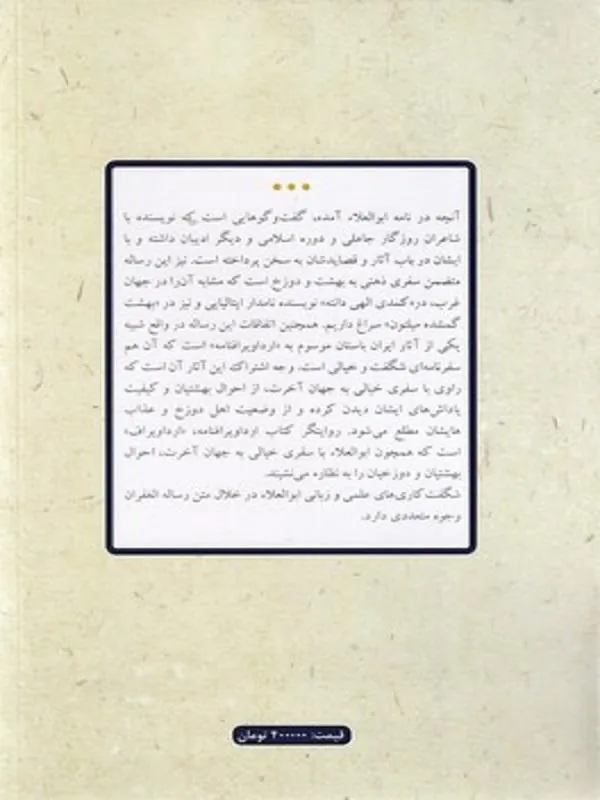 آنچه در نامه ابوالعلاء آمده، گفت‌وگوهایی است که نویسنده با
شاعران روزگار جاهلی و دوره اسلامی و دیگر ادیبان داشته و با
ایشان در باب آثار و قصایدشان به سخن پرداخته است. نیز این رساله
متضمن سفری ذهنی به بهشت و دوزخ است که مشابه آن‌را در جهان
غرب، در«کمدی الهی دانته» نویسنده نامدار ایتالیایی و نیز در «بهشت
گمشده میلتون» سراغ داریم. همچنین اتفاقات این رساله در واقع شبیه
یکی از آثار ایران باستان موسوم به «ارداویرافنامه» است که آن هم
سفرنامه‌ای شگفت و خیالی است. وجه اشتراک این آثار آن است که
راوی با سفری خیالی به جهان آخرت، از احوال بهشتیان و کیفیت
پاداش‌های ایشان دیدن کرده و از وضعیت اهل دوزخ و عذاب
هایشان مطلع می‌شود. روایتگر کتاب ارداویرافنامه، «ارداویراف»
است که همچون ابوالعلاء با سفری خیالی به جهان آخرت، احوال
بهشتیان و دوزخیان را به نظاره می‌نشیند.
شگفت‌کاری‌های علمی و زبانی ابوالعلاء در خلال متن رساله الغفران
وجوه متعددی دارد.
قیمت: ۴۰۰۰۰۰ تومان